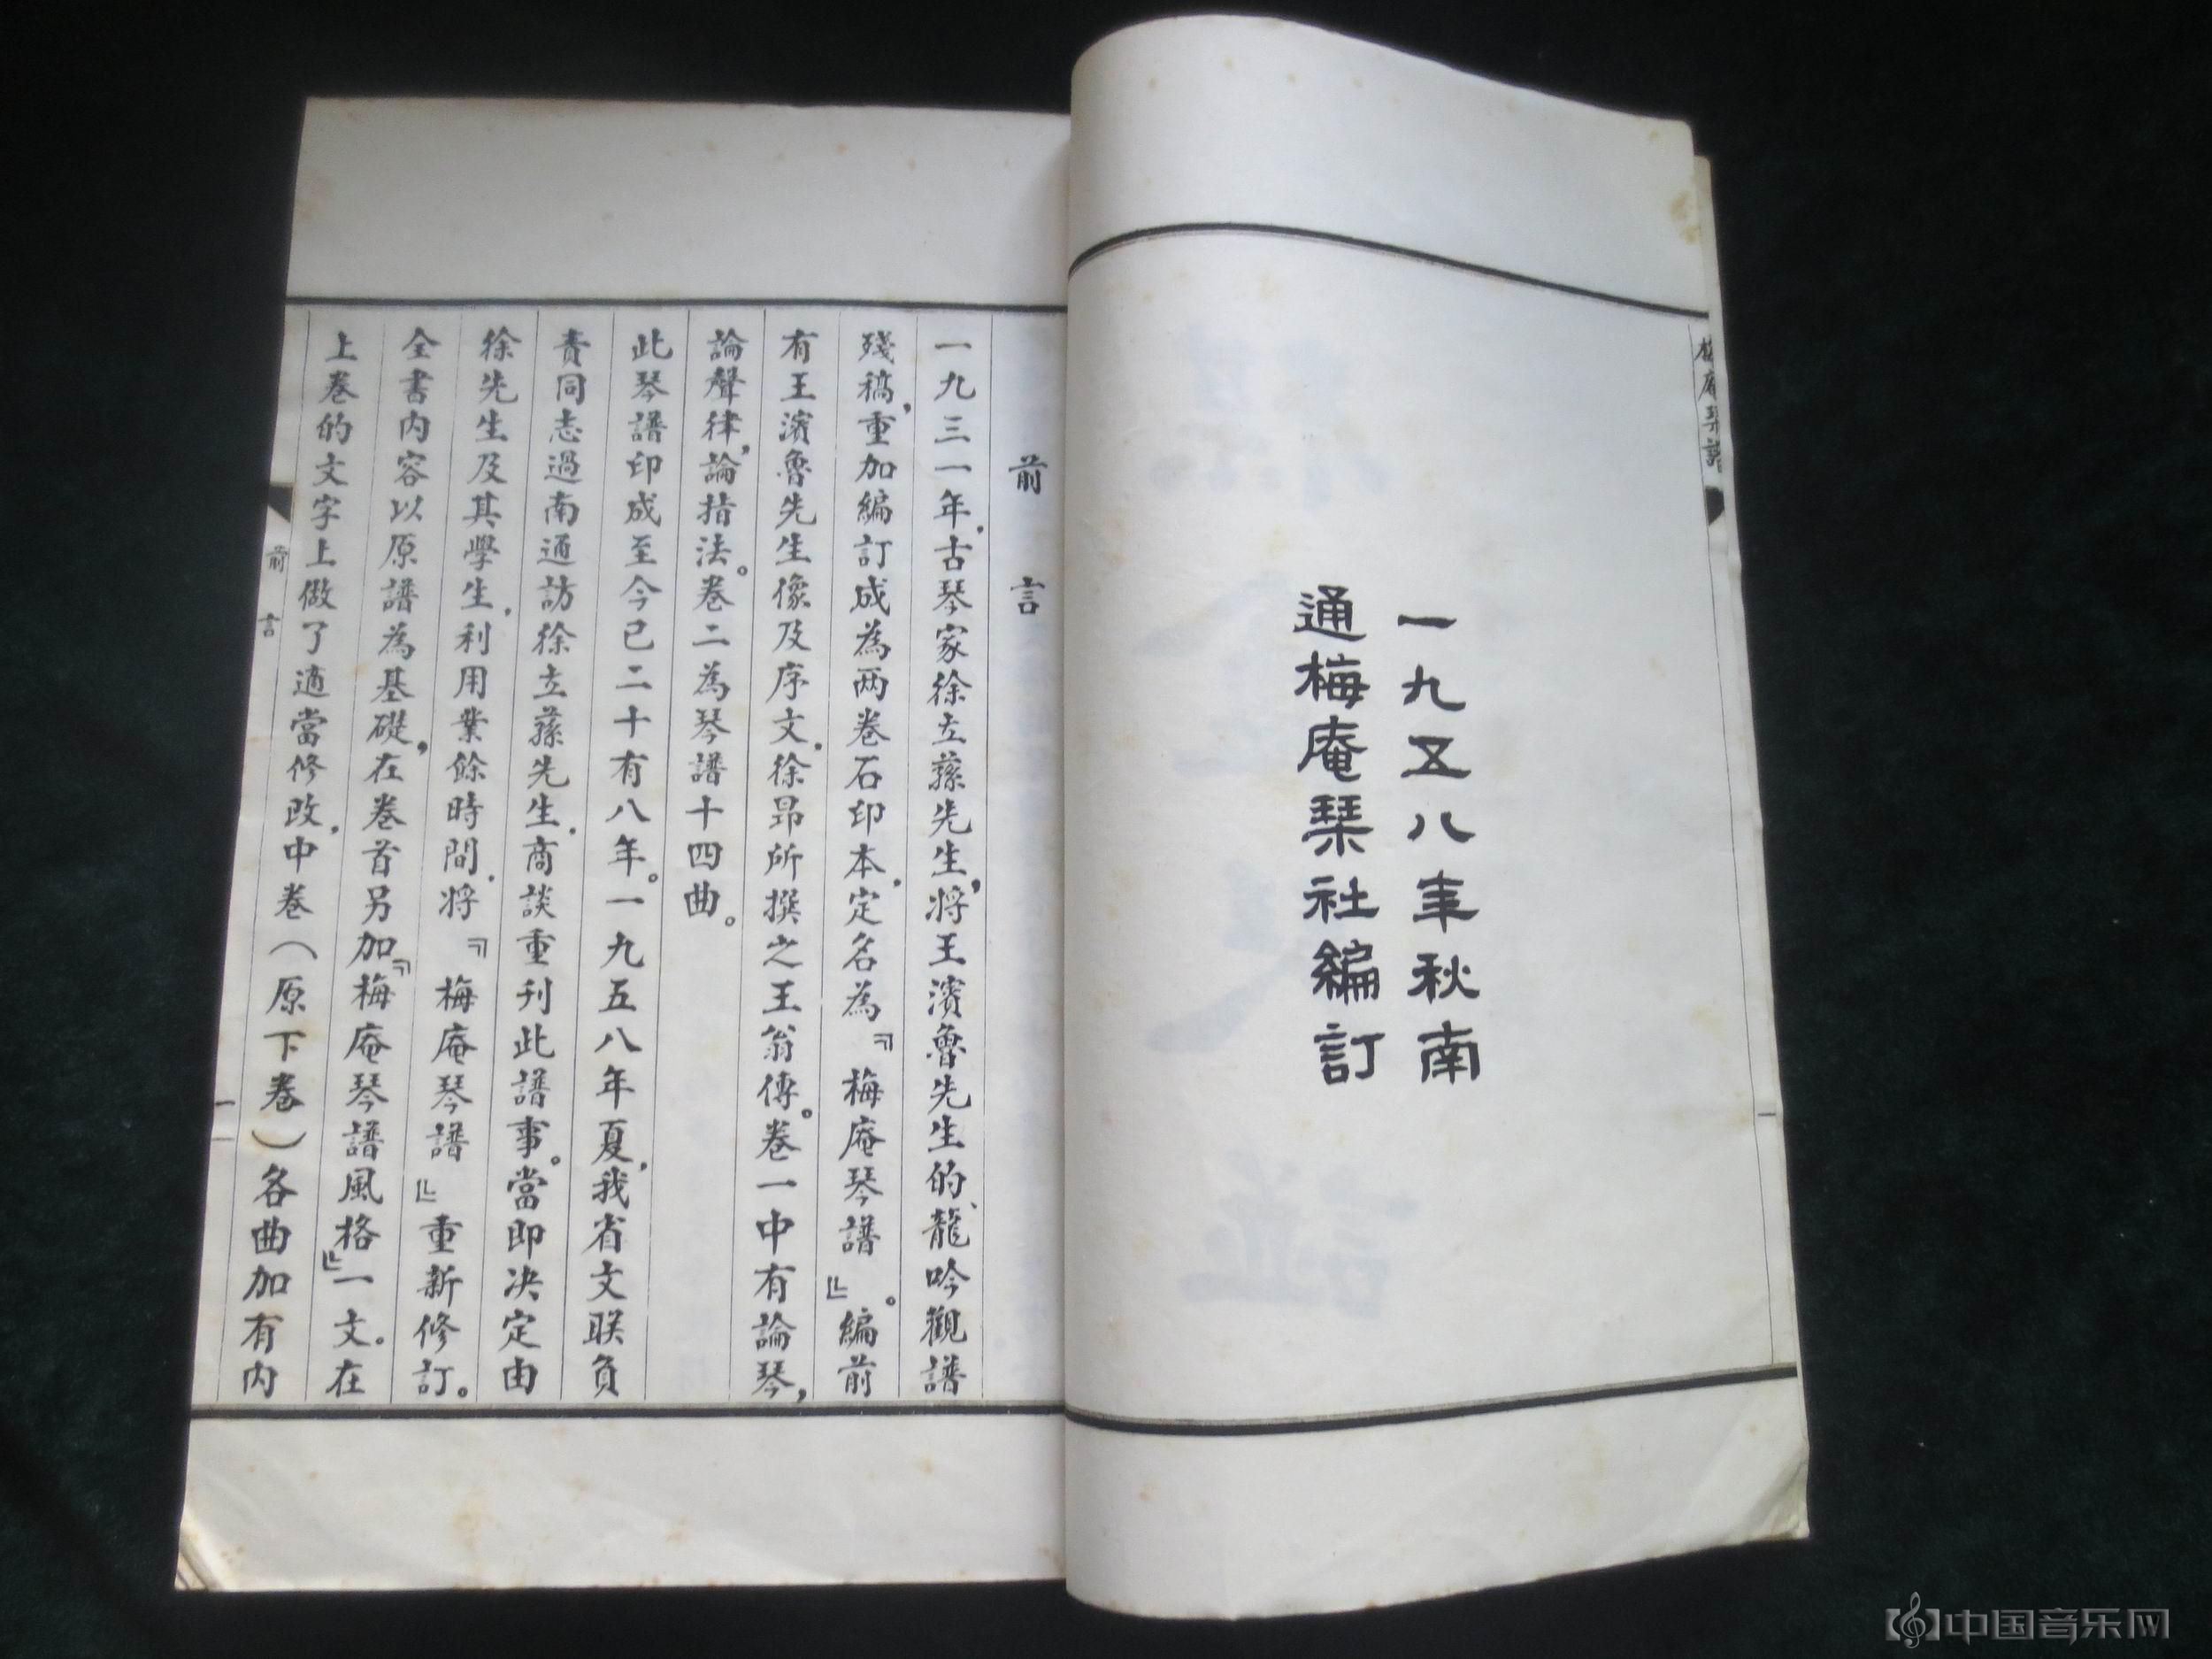 梅庵琹譜
一九五八年秋南
通梅庵琹社編訂
前言
一九三一年，古琴家徐立蓀先生，将王濱魯先生的、龍吟觀譜
殘稿，重加編訂成為两卷石印本，定名為『梅庵琴譜』。編前
有王濱魯先生像及序文，徐昂所撰之王翁傳。卷一中有論琴，
論聲律，論指法。卷二為琴譜十四曲。
此琴譜印成至今已二十有八年。一九五八年夏，我省文联負
責同志過南通訪徐立蓀先生，商談重刊此譜事。當即决定由
徐先生及其學生，利用業餘時間，将『梅庵琴譜』重新修訂。
全書内容以原譜為基礎，在卷首另加『梅庵琴譜風格』一文。在
上卷的文字上做了適當修改，中卷（原下卷）各曲加有内
前言
一
中国音乐网